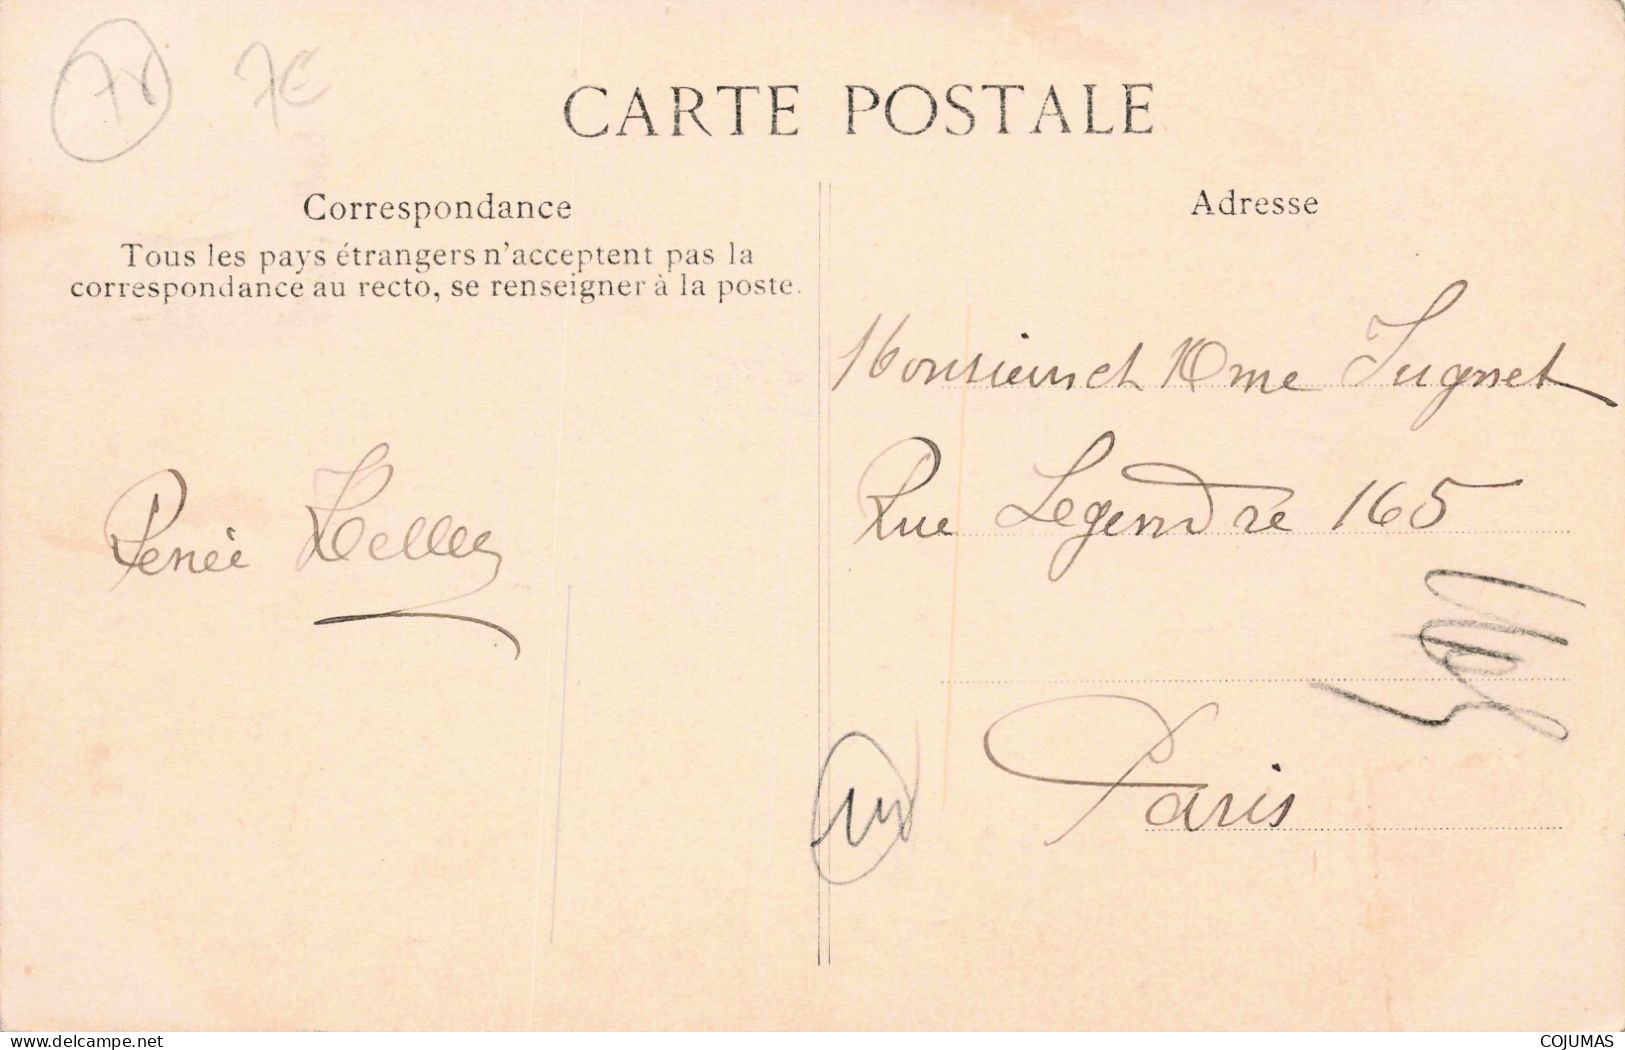 7€
CARTE POSTALE
Correspondance
Tous les pays étrangers n'acceptent pas la
correspondance au recto, se renseigner à la poste.
Renée
Adresse
Monsieur et Mme Jugnet
Rue Legendre 165
Paris
www.delcampe.net
COJUMAS